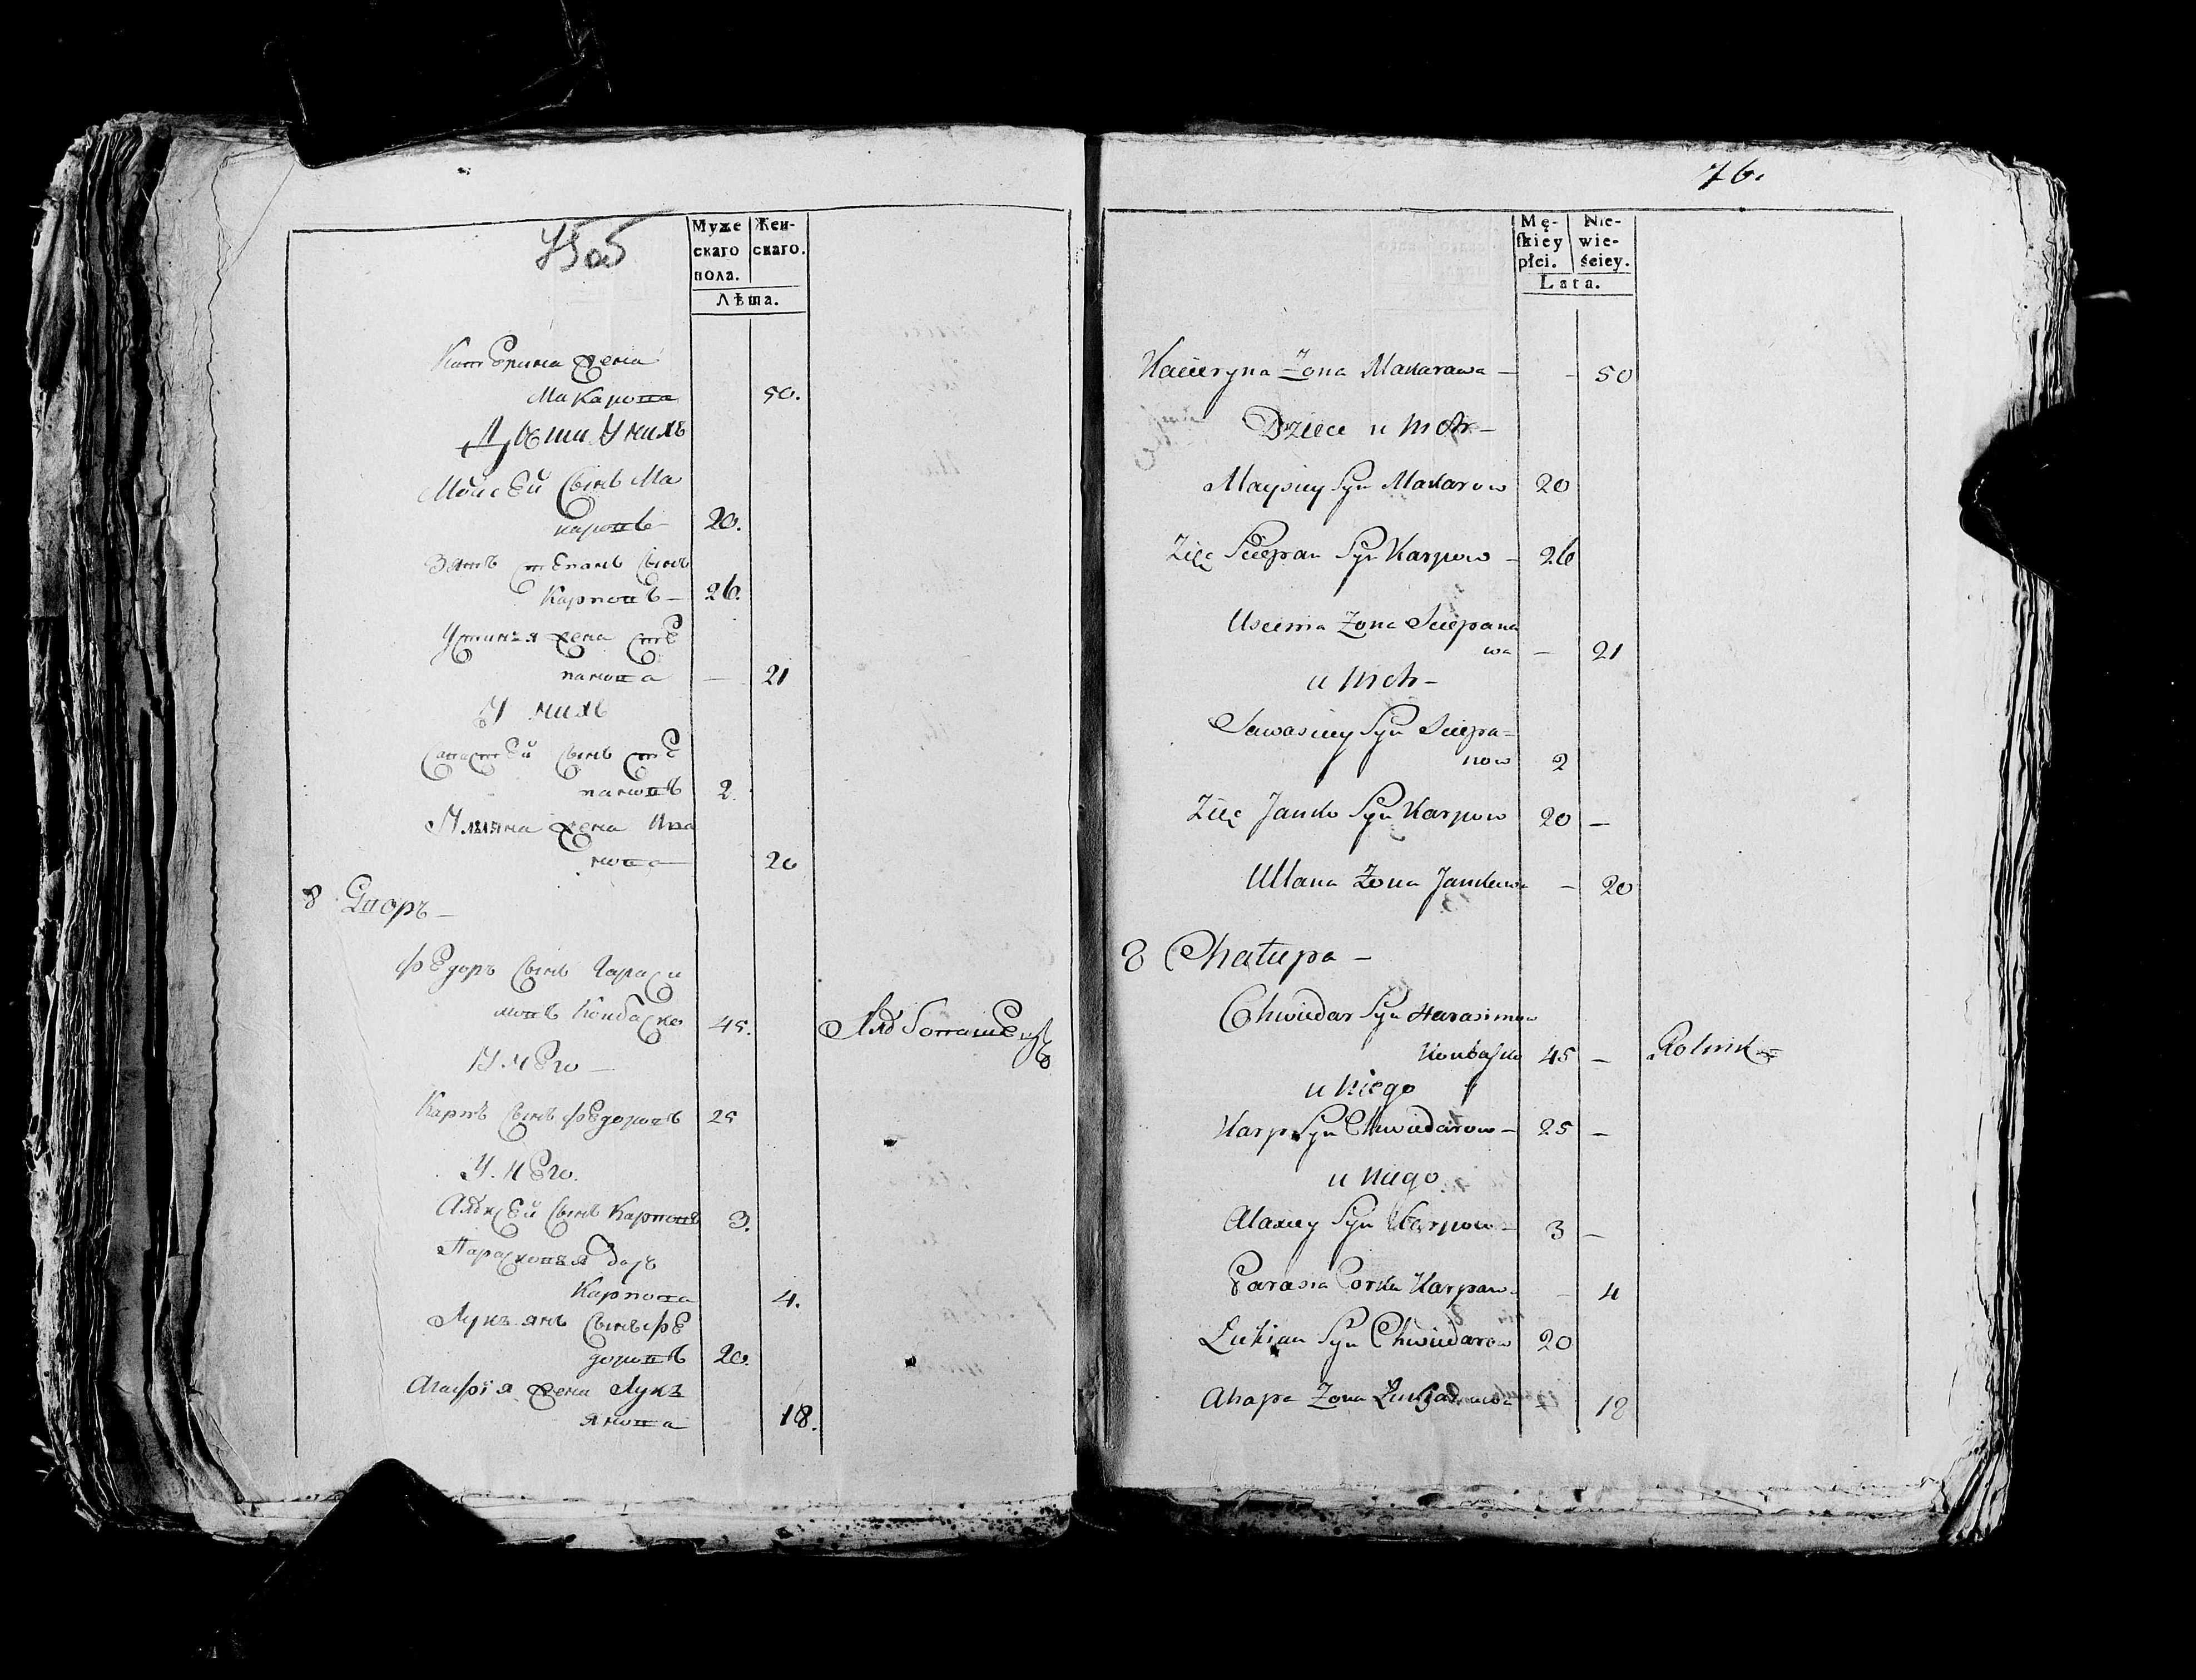 75об
Муже
скаго
пола.
Жен-
скаго.
Лѣта.
Катерина жена
Макарова 50.
Дѣти У нихъ
Мойсей сынъ Ма
каровъ 20.
Зять степанъ сынъ
Карповъ — 26.
Устинья жена сте
панова — 21
У нихъ
Савастей сынъ сте
пановъ 2.
Ульяна жена Ива
нова 20
8 Дворъ —
Федоръ сынъ Гараси
мовъ Конбаско 45.
У него —
Карпъ сынъ федоровъ 25
У него.
Алексей сынъ Карповъ 3.
Парасковья дочь
Карпова 4.
Лукьянъ сынъ фе
доровъ 20.
Агафія жена Лукь
янова 18.
76.
Mę-
skiey
płci.
Nie-
wie-
ściey.
Lata.
Kacieryna Żona Makarawa — - 50
Dzieci u Nich —
Maysiey Syn Makarow 20
Zięć Sciepan Syn Karpow — 26
Uscinia Żona Sciepana
wa — 21
u Nich —
Sawasciey Syn Sciepa=
now 2
Zięć Janko Syn Karpow 20 —
Ullana Żona Jankowa — 20
8 Chałupa —
Chwiedar Syn Harasimow
Konbasko 45 — Rolnik
u Niego
Karp Syn Chwiedarow — 25 —
u Niego
Alaxiey Syn Karpow — 3 —
Parasia Corka Karpaw. — 4
Łukian Syn Chwiedarow 20
Ahapa Żona Łukjanowa — 18